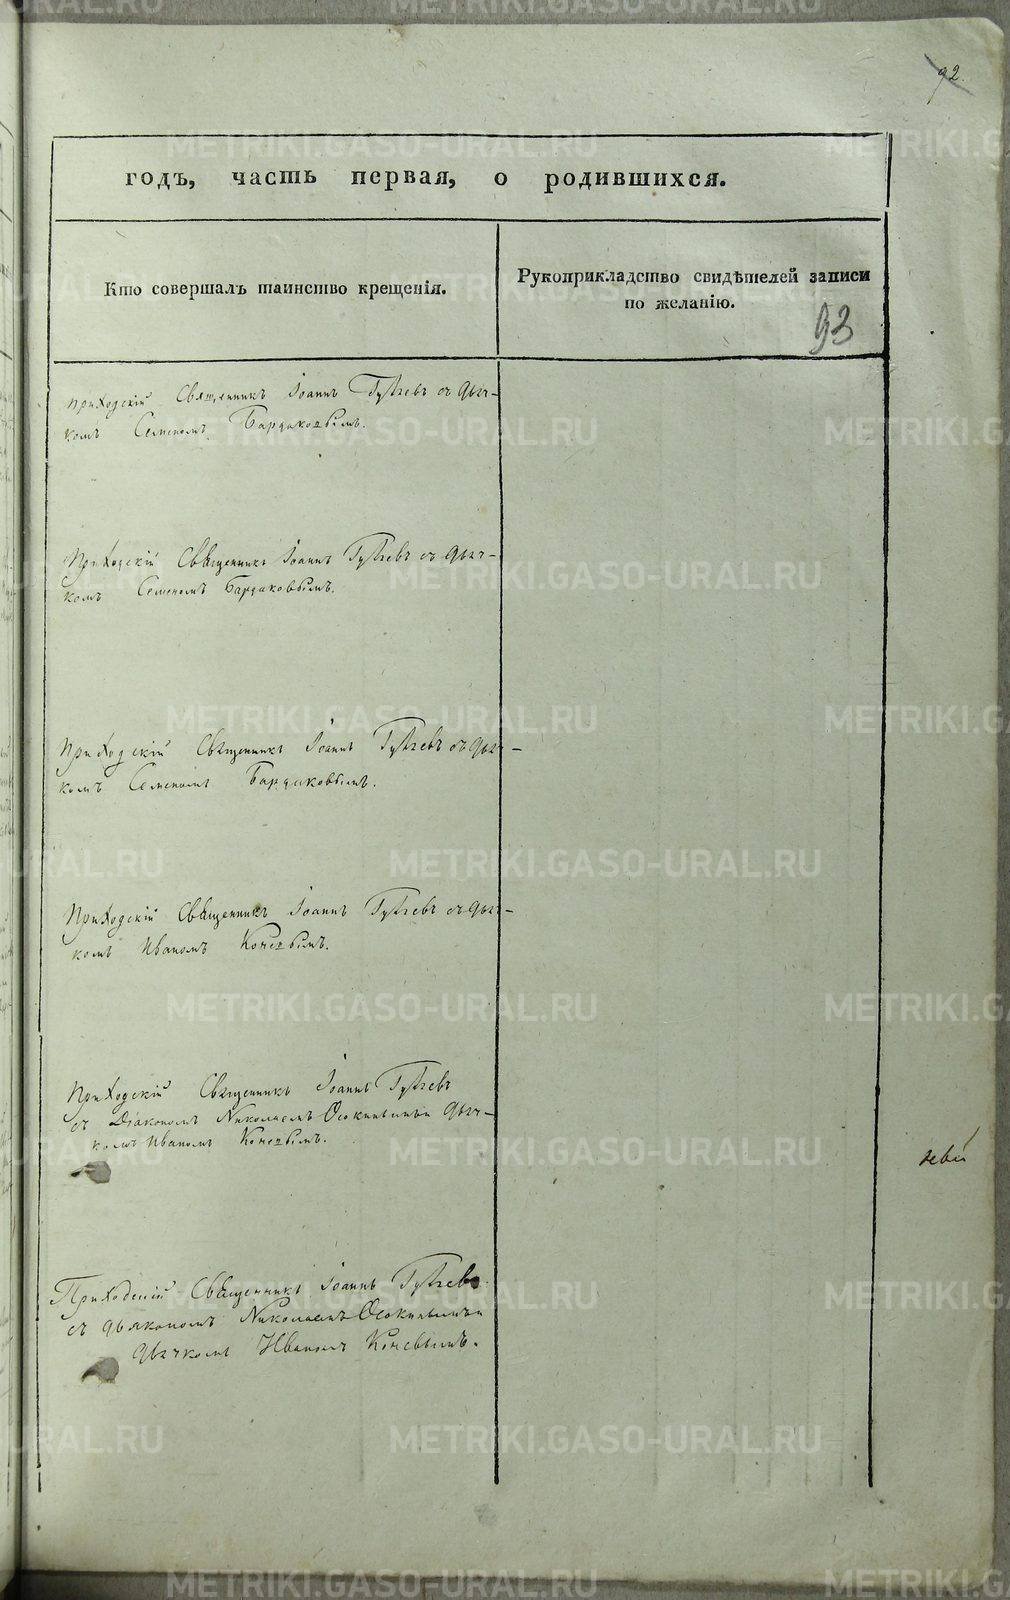 92.
годъ, часть первая, о родившихся.
Кто совершалъ таинство крещенія.
Рукоприкладство свидѣтелей записи
по желанію.
93
приходскій Священникъ Іоаннъ съ дьяч-
комъ Семеномъ Бардаковымъ.
Приходскій Священникъ Іоаннъ съ дьяч-
комъ Семеномъ Бардаковымъ.
приходскій Священникъ Іоаннъ съ дьяч-
комъ Семеномъ Бардаковымъ.
приходскій Священникъ Іоаннъ съ дьяч-
комъ Иваномъ Кочевымъ.
приходскій Священникъ Іоаннъ
съ Діакономъ Николаемъ Осокинымъ и дьяч-
комъ Иваномъ Кочевымъ.
Приходскій Священникъ Іоаннъ
съ дьякономъ Николаемъ Осокинымъ и
дьячкомъ Иваномъ Кочевымъ.
METRIKI.GASO-URAL.RU